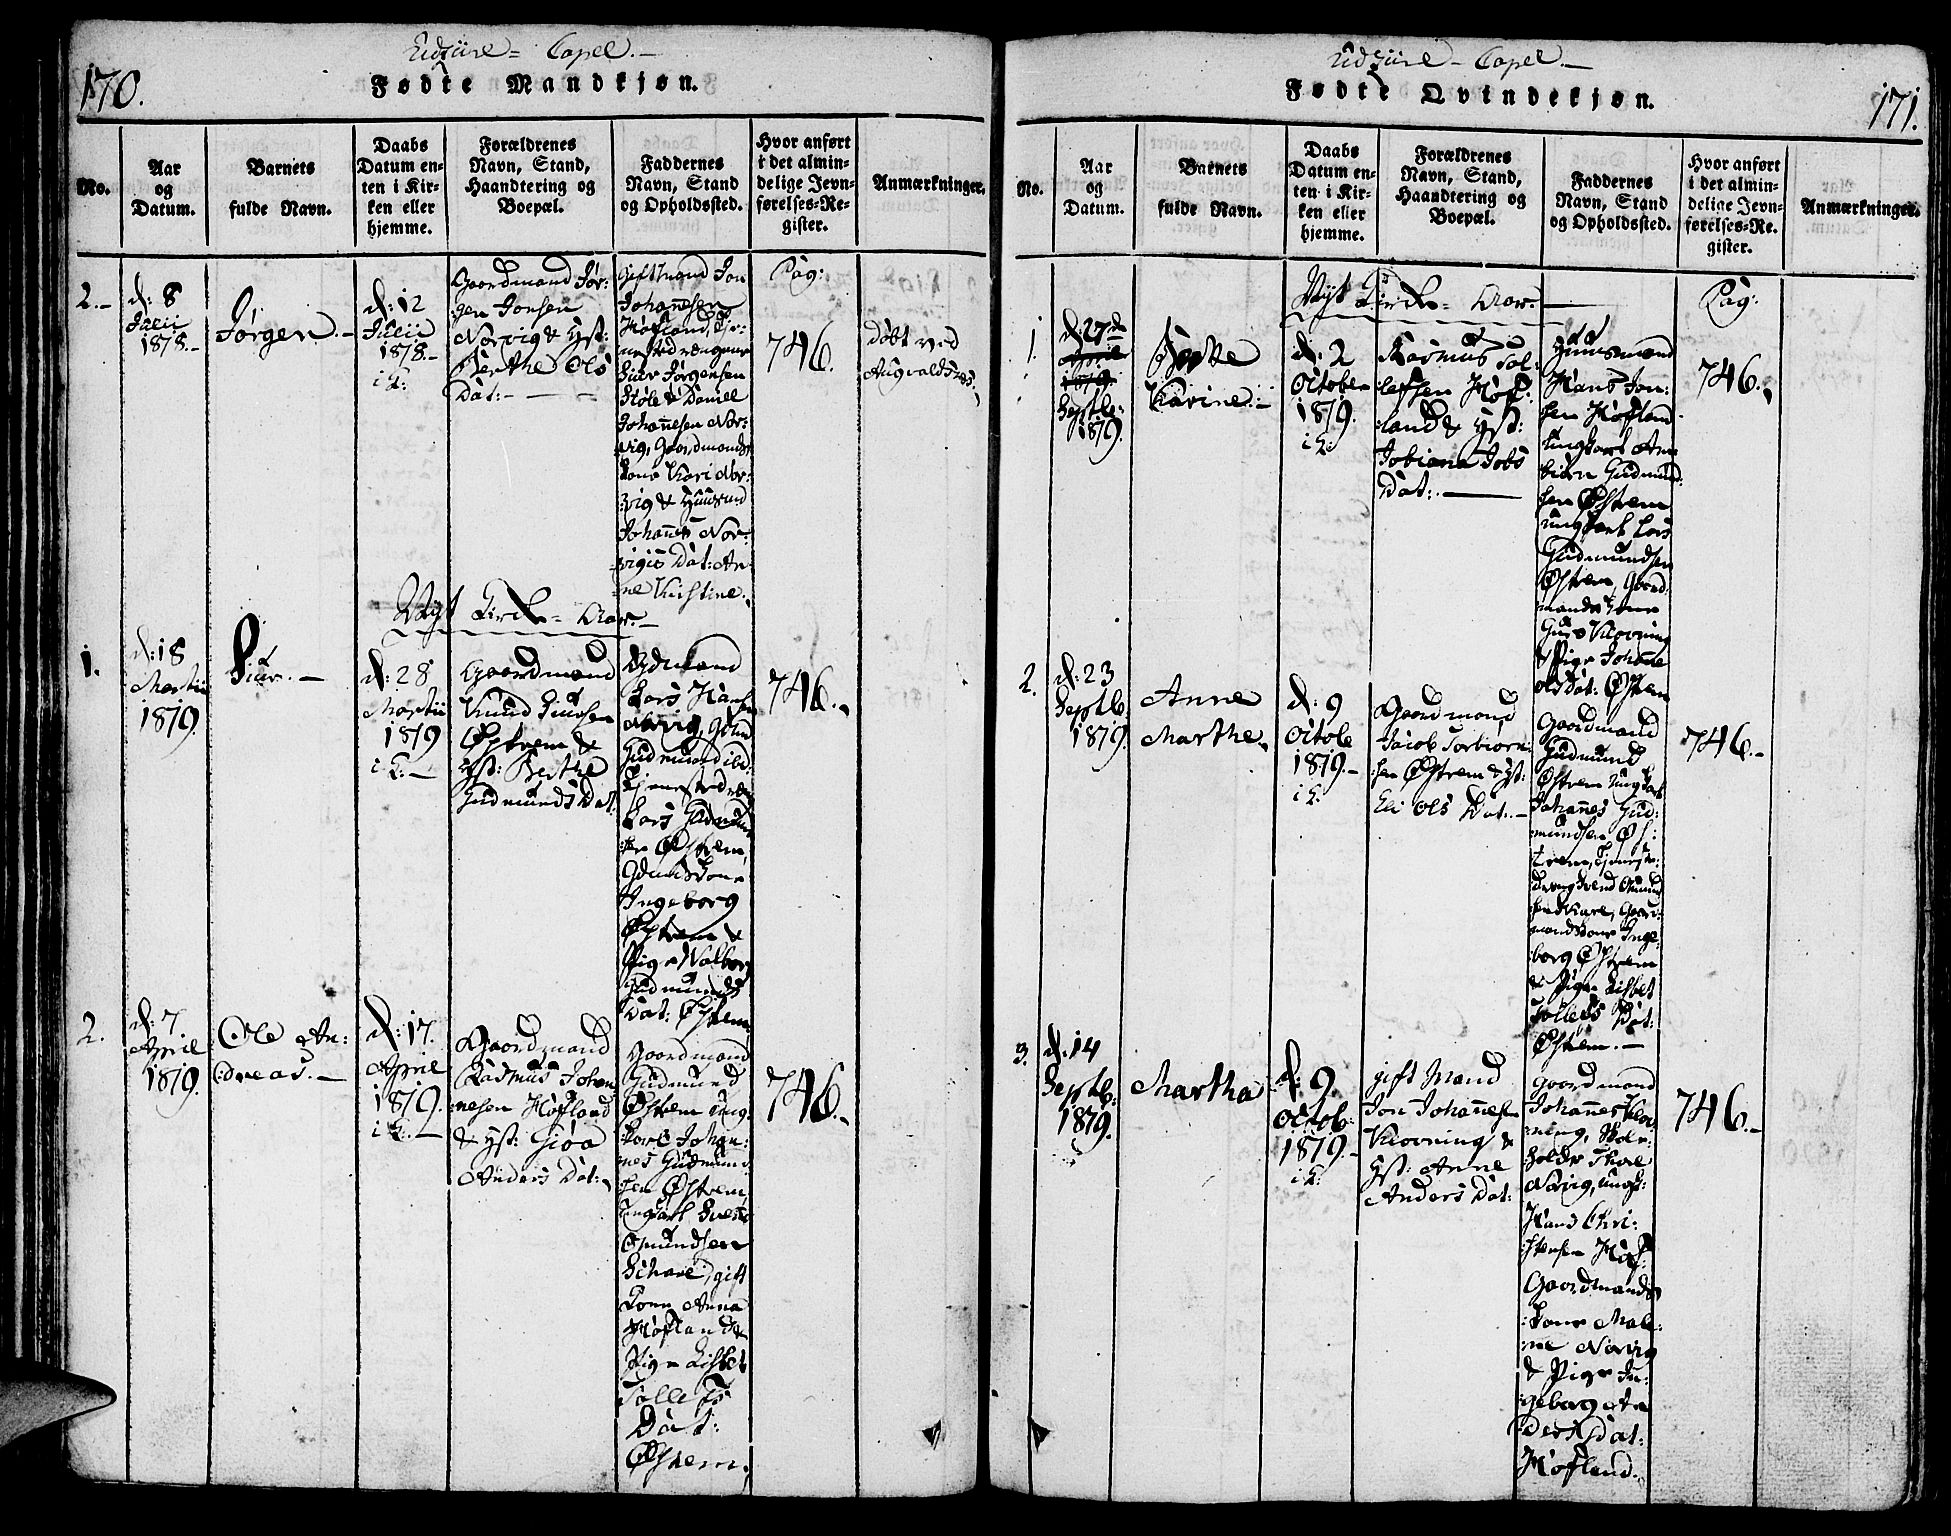 170.
Udsiire - Capel. -
Fødte Mandkjøn.
No.
Aar
og
Datum.
Barnets
fulde Navn.
Daabs
Datum en-
ten i Kir-
ken eller
hjemme.
Forældrenes
Navn, Stand,
Haandtering og
Boepæl.
Faddernes
Navn, Stand
og Opholdssted.
Hvor anført
i det almin-
delige Jevn-
førelses-Re-
gister.
Anmærkninger.
2.-
d: 8
Julii
1878.-
Jørgen. -
d: 12
Julii
1878.-
i K:
Gaardmand Jør-
gen Jonsen
Norvig & Hst:
Berthe Ols
Dat: -
gift Mand Jon
Johannesen
Hofland, Tje-
nestedrengene
Siur Jørgensen
Støle & Daniel
Johannesen Nor-
vig, Gaardmands
kone Kari Nor-
:vig & Huusmd
Johannes Nor-
:vigis Dat: An-
:ne Kristine.
Pag:
746.
døbt ved
Augvaldsnes.
Nyt Kirke- Aar. -
1.
d: 18
Martii
1879.
Siur. -
d: 28
Martii
1879
i K: -
Gaardmand
Knud Siursen
Østrem &
Hst: Berthe
Gudmunds Dat:
Gdmand
Lars Hansen
Norvig, Gdm
Gudmund ibd:
Tjenestedreng
Lars Gudmund
:sen Østrem,
Gdmdskone
Ingeborg
Østrem &
Pige Valborg
Gudmunds
Dat: Østrem
746.-
2.
d: 7.
April
1879.
Ole An:
:dreas. -
d: 17.
April
1879.
i K: -
Gaardmand
Rasmus Johan
nesen Hofland
& Hst: Giøa
Anders Dat:
Gaardmand
Gudmund
Østrem ung-
karl Johan:
nes Gudmund
:sen Østrem,
ungkarl Svend
Omundsen
Schare, gift
Kone Anna
Hofland &
Pige Lisbet
Tollefs
Dat:
Østrem.
746.-
Udsiire - Capel. -
171.
Fødte Qvindekjøn.
No.
Aar
og
Datum.
Barnets
fulde Navn.
Daabs
Datum en-
ten i Kir-
ken eller
hjemme.
Forældrenes
Navn, Stand,
Haandtering og
Boepæl.
Faddernes
Navn, Stand
og Opholdssted.
Hvor anført
i det almin-
delige Jevn-
førelses-Re-
gister.
Anmærkninger.
Nyt Kirke- Aar. -
1.
d: 27de
April
1879.
Septb:
1879.
Karine. -
d: 2
October
1879.
i K:
Rasmus Tol:
lefsen Hof:
:land & Hst:
Tobiana Jobs
Dat: -
Huusmand
Hans Jon:
sen Hofland
ungkarl Am
biørn Gudmund
sen Østrem
ungkarl Lars
Gudmundsen
Østrem, Gaard
mands kone
Guro Klovning
& Pige Johanne
Ols Dat: Østrem
Pag:
746.
2.
d: 23
Septb:
1879.
Anne
Marthe.
d: 9
Octobe
1879.-
i K:
Gaardmand
Jacob Torbiørn:
:sen Østrem & Hst:
Eli Ols Dat: -
Gaardmand
Gudmund
Østrem ungkarl
Johannes Gud:
mundsen Øs:
trem, Tjeneste:
dreng Svend Omund
sen Skare, Gaard:
mandskone Inge:
:borg Østrem
& Pige Lisbet
Tollefs Dat:
Østrem. -
746.-
3.
d: 14
Septb:
1879.
Martha
d: 9
Octob:
1879.-
i K:
gift Mand
Jon Johannesen
Klovning &
Hst: Anne
Anders Dat:
Gaardmand
Johannes Klov
ning,
Norvig, ungk:
Hans Chri:
:stensen Hof:
Gaardmands
:kone Male:
ne Norvig
& Pige In:
:geborg An
Ders Dat:
Hofland.
746.-